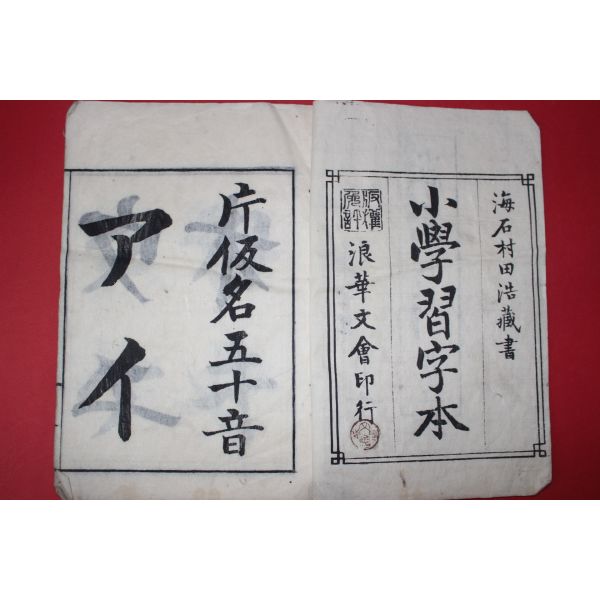 海石村田浩蔵書
小學習字本
版權免許
浪華文會印行
片仮名五十音
アイ